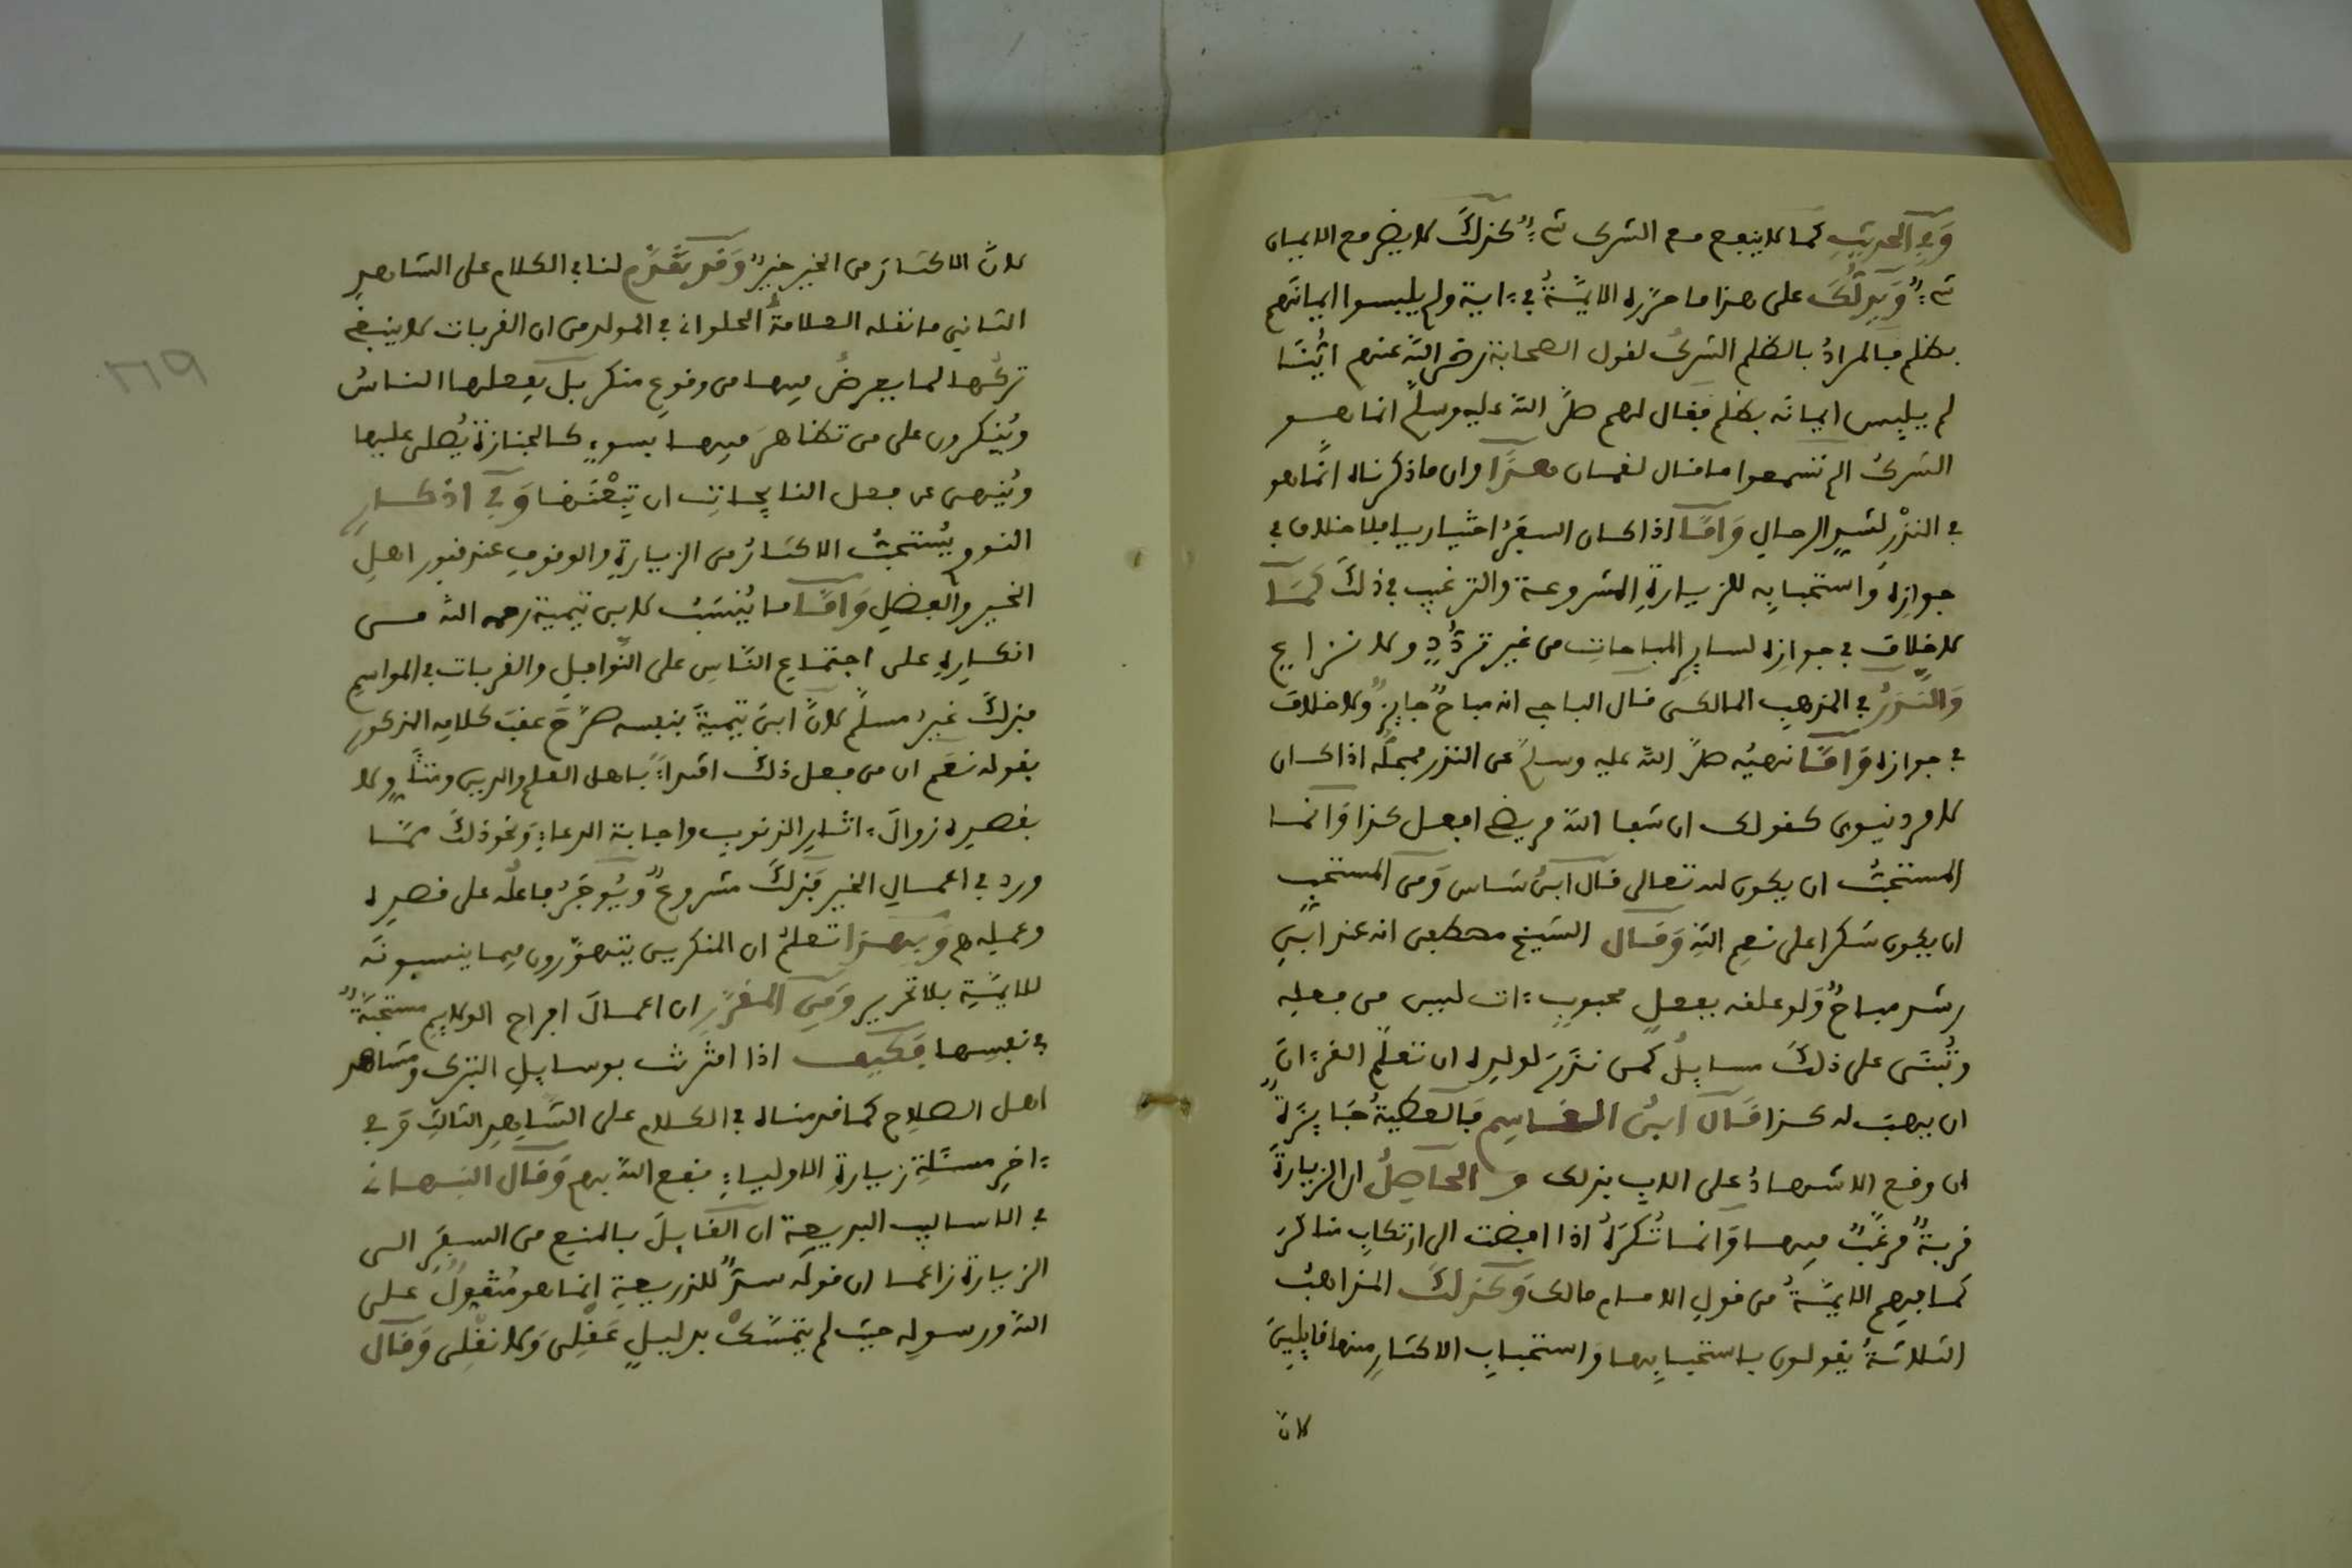 وَفِي الحديثِ كما لا ينفع مع الشرك شيءٌ كذلكَ لا يضر مع الايمان
شيءٌ وَيدلُّكَ على هذا ما حرّره الايمَّةُ في ءاية ولم يلبسوا ايمانهم
بظلم فالمرادُ بالظلم الشركُ لقول الصحابة رضي الله عنهم ايُّنَا
لم يلبِس ايمانَه بظلم فقال لهم صلَّى الله عليه وسلم انما هو
الشركُ الم تسمعوا ما قال لقمان هذَا وان ما ذكرناه انَّما هو
في النذْر لشدِ الرحالِ وَامَّا اذا كان السفرُ اختياريا فلا خلاف في
جوازِه وَاستحبابِه للزيارةِ المشروعة والترغيب في ذلكَ كمَا
لا خلافَ في جوازِه لسايرِ المباحاتِ من غير تردُّدٍ ولا نزاع
وَالنَّذرُ في المذهبِ المالكي قال الباجي انه مباحٌ جايزٌ ولا خلافَ
في جوازه وَامَّا نهيُه صلَّى الله عليه وسلم عن النذر فمحملُه اذا كان
لامر دنيوي كقولك ان شفا الله مريضي افعل كذا وَانما
المستحبُّ ان يكون لله تعالى قال ابنُ شاس وَمن المستحبِ
ان يكون شكرا على نعمِ اللهِ وَقال الشيخ مصطفى انه عند ابنِ
رشد مباحٌ وَلو علقه بفعلٍ محبوبٍ ءات ليس من فعلِه
وتُبْنَى على ذلكَ مسايلُ كمن نذَرَ لولدِه ان تعلّم القرءانَ
ان يهبَ له كذا قَالَ ابنُ القاسِمِ فَالعطيةُ جَايزَةٌ
ان وقع الاشهادُ على الابِ بذلك وَالحاصِلُ ان الزيارةَ
قربةٌ مرغَّبٌ فيها وَانما تُكرَهُ اذا افضت الى ارتكابِ مناكرَ
كما فهِم الايمَّةُ من قولِ الامام مالك وَكذلكَ المذاهبُ
الثلاثةُ يقولون باستحبابِها وَاستحبابِ الاكثارِ منها قايلِينَ
لانَّ
لانَّ الاكثارَ من الخير خيرٌ وَقد تقَدَّم لنا في الكلام على الشاهدِ
الثاني ما نقله العلامةُ الحلواني في المولد من ان القربات لا ينبغي
تركُها لما يعرِضُ فيها من وقوعِ منكر بل يفعلها الناسُ
ويُنكرون على من تظاهرَ فيها بسوءٍ كالجنازة يُصلى عليها
ويُنهى عن فعل النايحاتِ ان تبِعْنَها وَفي اذكارِ
النووي يُستحبُّ الاكثارُ من الزيارةِ والوقوفِ عند قبور اهلِ
الخير والفضلِ وَامَّا ما يُنسَبُ لابن تيمية رحمه الله من
انكارِه على اجتماعِ النَّاسِ على النَّوافِلِ والقربات في المواسمِ
فذلكَ غيرُ مسلّم لانَّ ابنَ تيميةَ بنفسه صرَّحَ عقبَ كلامِه المذكورِ
بقوله نعَم ان من فعل ذلكَ اقتداءً باهل العلم والدين ولا
بقصدِه زوالَ ءاثارِ الذنوبِ واجابةَ الدعاءِ وَنحوَ ذلكَ ممَّا
ورد في اعمالِ الخير فَذلكَ مشروعٌ وَيُوجَرُ فاعلُه على قصدِه
وعملِه وَبهذا تعلمُ ان المنكرين يتهوَّرون فيما ينسبونَه
للايمَّةِ بلا تحرير وَمِن المقرَّرِ ان اعمالَ افراح الولايمِ مستحبَّةٌ
في نفسِها فَكيفَ اذا اقترنت بوسايلِ التبرك ومشاهد
اهل الصلاح كما قدمناه في الكلام على الشَّاهدِ الثالثِ وَفي
ءاخِرِ مسئلةِ زيارةِ الاولياءِ نفع اللهُ بهم وَقال النبهاني
في الاساليب البديعة ان القايلَ بالمنع من السفرِ الى
الزيارة زاعما ان قولَه سدٌّ للذريعةِ انما هو متقولٌ على
الله ورسولِه حيث لم يتمسَّكْ بدليلٍ عَقْلِي وَلا نقْلِي وَقَال